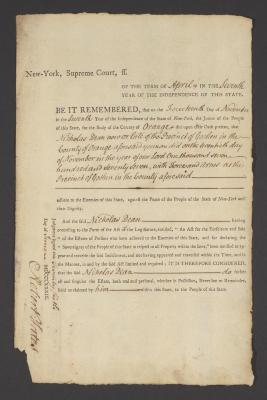 New-York, Supreme Court, ſſ.
OF THE TERM OF April IN THE Seventh
YEAR OF THE INDEPENDENCE OF THIS STATE.
BE IT REMEMBERED, that on the fourteenth Day of November
in the Seventh Year of the Independence of the State of New-York, the Jurors of the People
of this State, for the Body of the County of Orange did upon their Oath preſent, that
Nicholas Dean now or late of the Precinct of Goshen in the
County of Orange aforesaid yeoman did on the twentieth day
of November in the year of our Lord One thousand seven
hundred and seventy seven, with force and arms at the
Precinct of Goshen in the County aforesaid
adhere to the Enemies of this State, againſt the Peace of the People of the State of New-York and
their Dignity.
And the ſaid Nicholas Dean having
according to the Form of the Act of the Legiſlature, entitled, “An Act for the Forfeiture and Sale
“of the Eſtates of Perſons who have adhered to the Enemies of this State, and for declaring the
“Sovereignty of the People of this State in reſpect to all Property within the ſame,” been notified to ap-
pear and traverſe the ſaid Indictment, and not having appeared and traverſed within the Time, and in
the Manner, in and by the ſaid Act limited and required; IT IS THEREFORE CONSIDERED,
that the ſaid Nicholas Dean do forfeit
all and ſingular the Eſtate, both real and perſonal, whether in Poſſeſſion, Reverſion or Remainder,
held or claimed by him within this State, to the People of this State.
Judgment
MDCCLXXXIII.